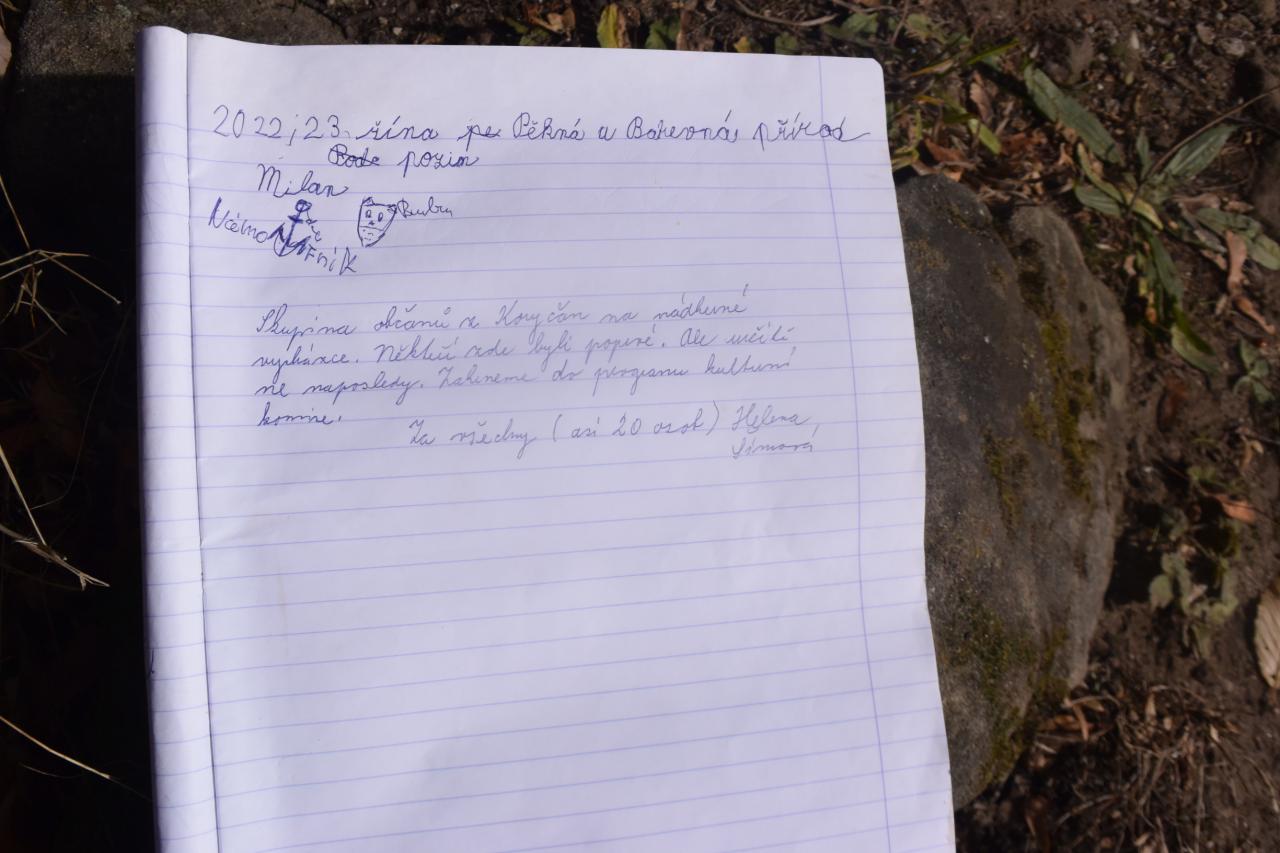 2022; 23. řína Pěkná a Barevná přírod
pozim
Milan
Skupina občanů z Koryčan na nádherné
vycházce. Někteří zde byli poprvé. Ale určitě
ne naposledy. Zahrneme do programu kulturní
komise.
Za všechny (asi 20 osob) Helena